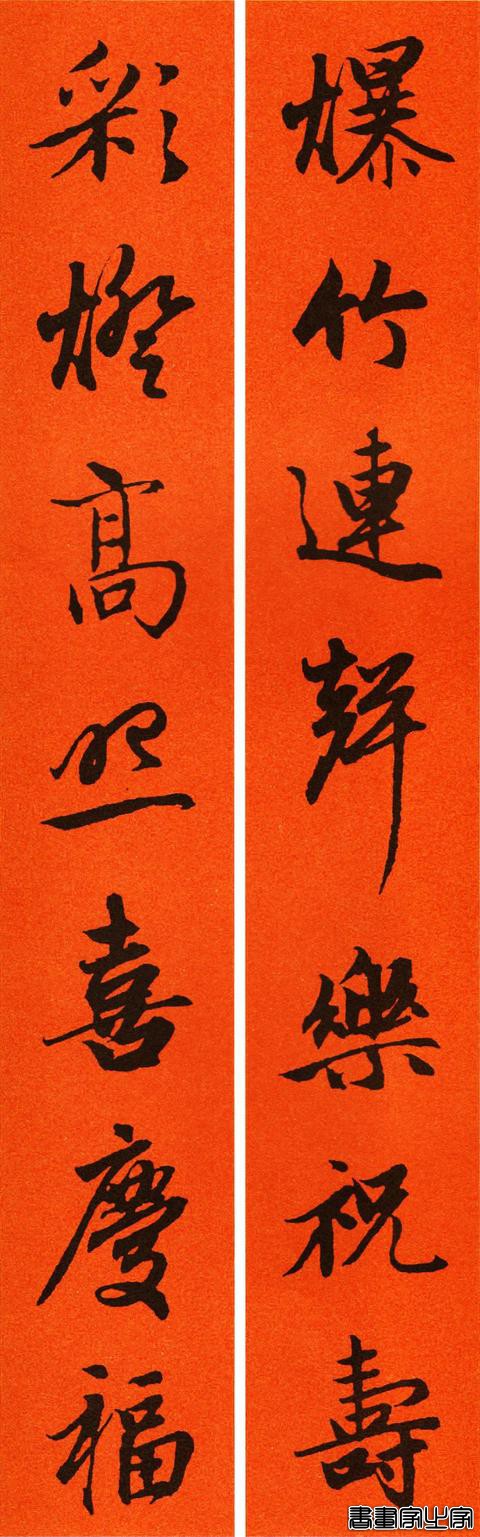 爆竹連聲樂祝壽
彩燈高照喜慶福
書畫家之家